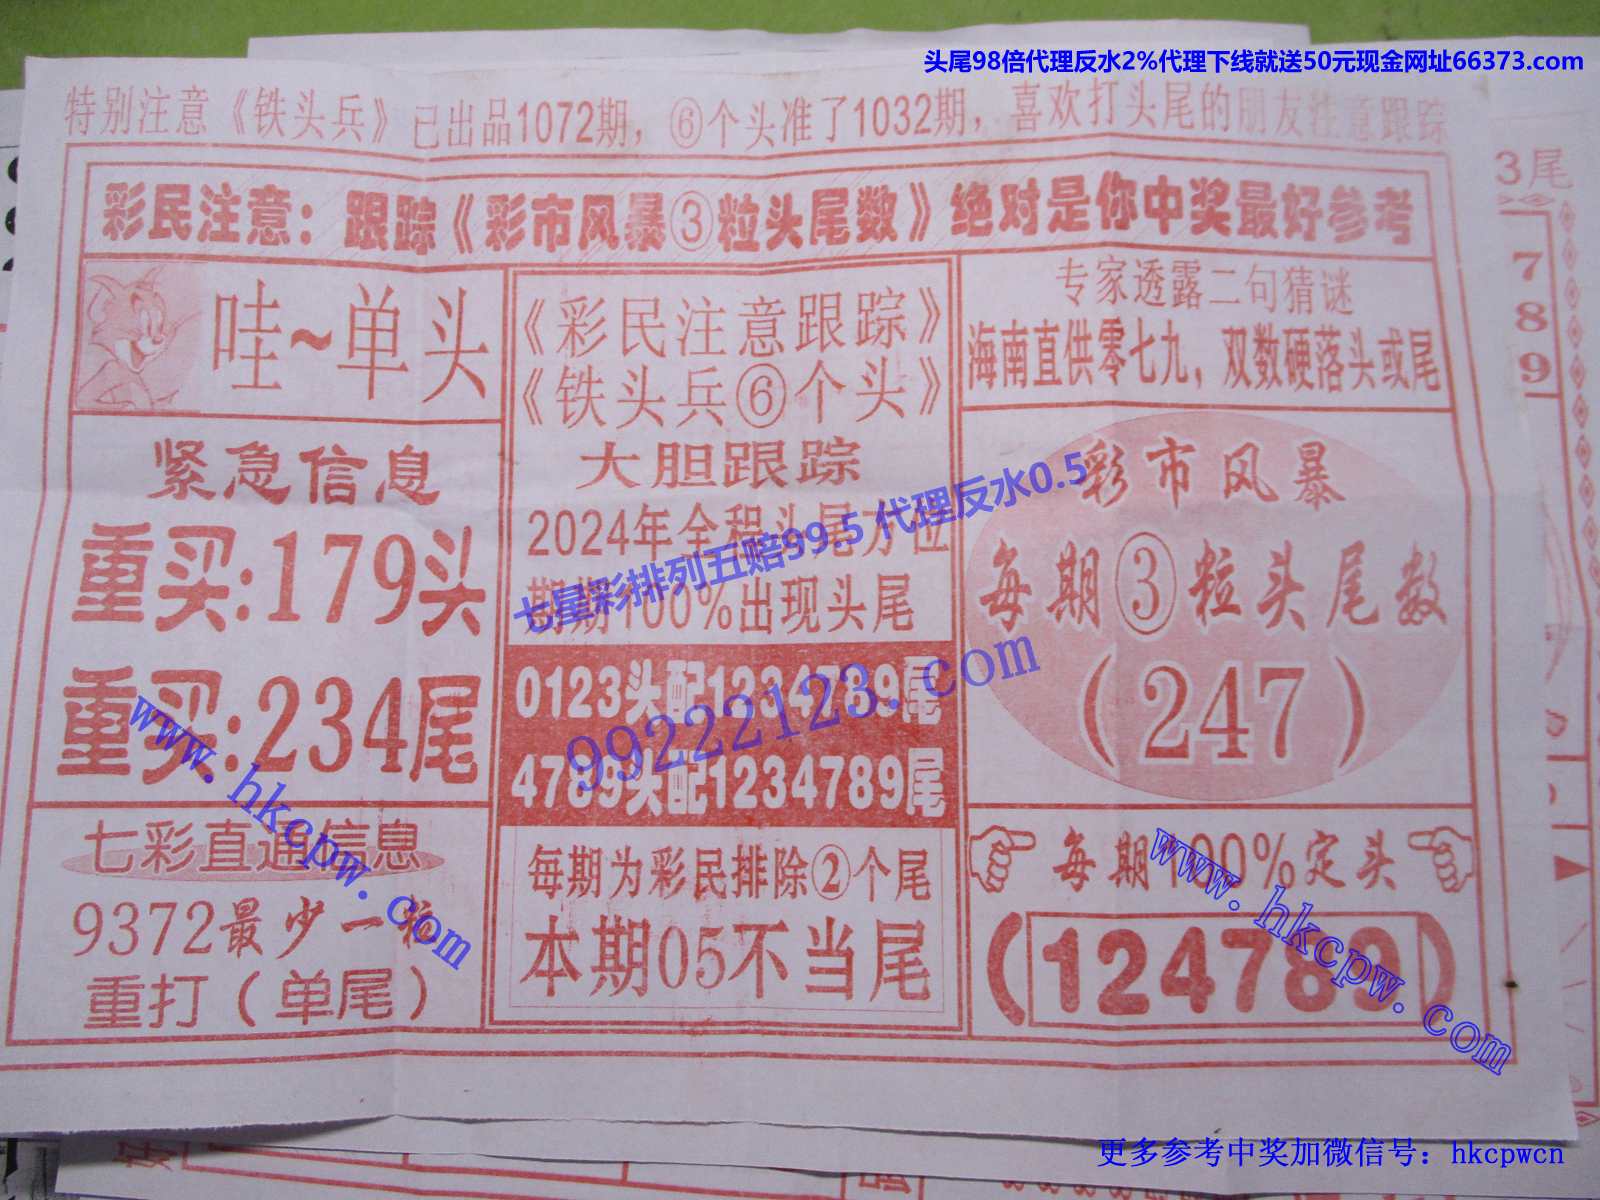 头尾98倍代理反水2%代理下线就送50元现金网址66373.com
特别注意《铁头兵》已出品1072期，⑥个头准了1032期，喜欢打头尾的朋友注意跟踪
彩民注意：跟踪《彩市风暴③粒头尾数》绝对是你中奖最好参考
哇~单头
紧急信息
重买:179头
重买:234尾
七彩直通信息
9372最少一粒
重打（单尾）
《彩民注意跟踪》
《铁头兵⑥个头》
大胆跟踪
2024年全程头尾方位
期期100%出现头尾
0123头配1234789尾
4789头配1234789尾
每期为彩民排除②个尾
本期05不当尾
专家透露二句猜谜
海南直供零七九，双数硬落头或尾
彩市风暴
每期③粒头尾数
（247）
每期100%定头
（124789）
3尾
7
8
9
七星彩排列五赔99.5 代理反水0.5
99222123.com
www.hkcpw.com
www.hkcpw.com
更多参考中奖加微信号：hkcpwcn